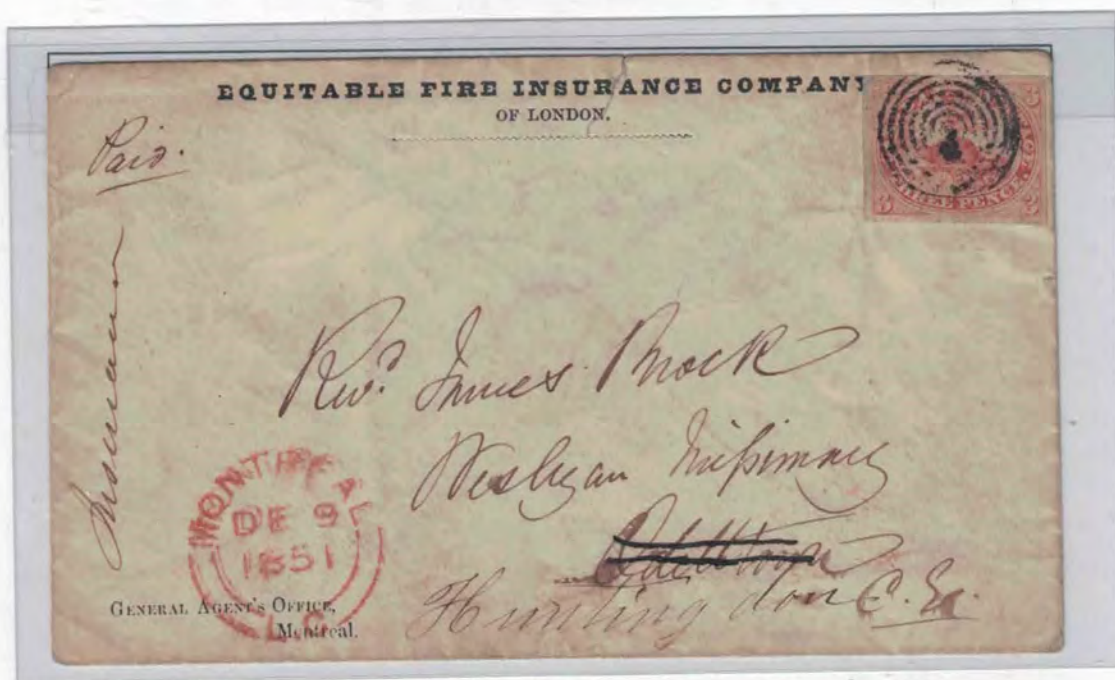 EQUITABLE FIRE INSURANCE COMPANY
OF LONDON.
Paid.
Insurance
3 3
3 3
Revd. James Brock
Wesleyan Missionary
Odelltown
Huntingdon C. E.
MONTREAL
DE 9
1851
L.C
GENERAL AGENT'S OFFICE,
Montreal.